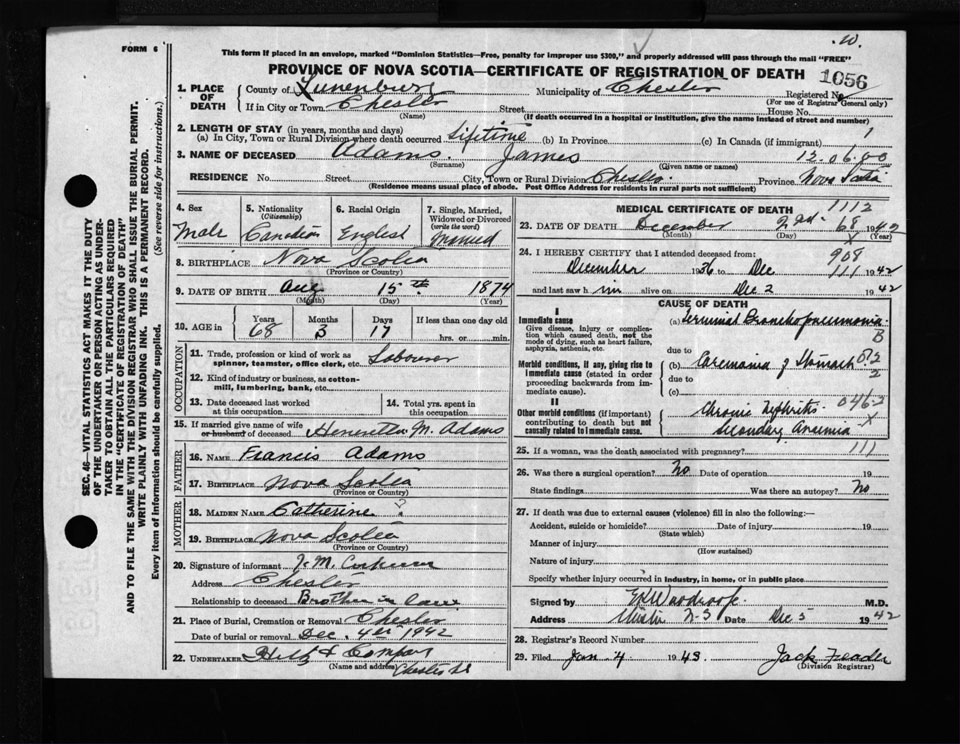 W.
FORM 6
This form if placed in an envelope, marked "Dominion Statistics—Free, penalty for improper use $300," and properly addressed will pass through the mail "FREE"
PROVINCE OF NOVA SCOTIA—CERTIFICATE OF REGISTRATION OF DEATH
1056
1. PLACE OF DEATH
County of Lunenburg Municipality of Chester Registered No.
(For use of Registrar General only)
If in City or Town Chester Street House No.
(Name) (If death occurred in a hospital or institution, give the name instead of street and number)
2. LENGTH OF STAY (in years, months and days)
(a) In City, Town or Rural Division where death occurred Lifetime (b) In Province (c) In Canada (if immigrant) 1
3. NAME OF DECEASED Adams. James 12.06.00
(Surname) (Given name or names)
RESIDENCE No. Street City, Town or Rural Division Chester Province Nova Scotia
(Residence means usual place of abode. Post Office Address for residents in rural parts not sufficient)
4. Sex
Male
5. Nationality (Citizenship)
Canadian
6. Racial Origin
English
7. Single, Married, Widowed or Divorced (write the word)
Married
8. BIRTHPLACE Nova Scotia
(Province or Country)
9. DATE OF BIRTH Aug 15th 1874
(Month) (Day) (Year)
10. AGE in
Years Months Days If less than one day old
68 3 17 hrs. or min.
OCCUPATION
11. Trade, profession or kind of work as spinner, teamster, office clerk, etc. Labourer
12. Kind of industry or business, as cotton-mill, lumbering, bank, etc.
13. Date deceased last worked at this occupation
14. Total yrs. spent in this occupation
15. If married give name of wife or husband of deceased M. Adams
FATHER
16. NAME Francis Adams
17. BIRTHPLACE Nova Scotia
(Province or Country)
MOTHER
18. MAIDEN NAME Catherine ?
19. BIRTHPLACE Nova Scotia
(Province or Country)
20. Signature of informant
Address Chester
Relationship to deceased Brother in law
21. Place of Burial, Cremation or Removal Chester
Date of burial or removal Dec. 4th 1942
22. UNDERTAKER
(Name and address) Chester
MEDICAL CERTIFICATE OF DEATH 1112
23. DATE OF DEATH December 2nd 68 1942
(Month) (Day) X (Year)
24. I HEREBY CERTIFY that I attended deceased from: 908
December 1936 to Dec 111 1942
and last saw him alive on Dec 2 1942
CAUSE OF DEATH
I
Immediate cause
Give disease, injury or complication which caused death, not the mode of dying, such as heart failure, asphyxia, asthenia, etc.
(a) Terminal Bronchopneumonia B
due to
Morbid conditions, if any, giving rise to immediate cause (stated in order proceeding backwards from immediate cause).
(b) Carcinoma of Stomach
due to 2
(c)
II
Other morbid conditions (if important) contributing to death but not causally related to immediate cause.
Chronic Nephritis.
Secondary Anaemia X
25. If a woman, was the death associated with pregnancy? 111
26. Was there a surgical operation? No Date of operation 19
State findings Was there an autopsy? No
27. If death was due to external causes (violence) fill in also the following:—
Accident, suicide or homicide? Date of injury 19
(State which)
Manner of injury
(How sustained)
Nature of injury
Specify whether injury occurred in industry, in home, or in public place
Signed by M.D.
Address Chester N-S Date Dec 5 1942
28. Registrar's Record Number
29. Filed Jan 4 1943
(Division Registrar)
SEC. 46—VITAL STATISTICS ACT MAKES IT THE DUTY
OF THE UNDERTAKER OR PERSON ACTING AS UNDER-
TAKER TO OBTAIN ALL THE PARTICULARS REQUIRED
IN THE "CERTIFICATE OF REGISTRATION OF DEATH"
AND TO FILE THE SAME WITH THE DIVISION REGISTRAR WHO SHALL ISSUE THE BURIAL PERMIT.
WRITE PLAINLY WITH UNFADING INK. THIS IS A PERMANENT RECORD.
Every item of Information should be carefully supplied. (See reverse side for instructions.)